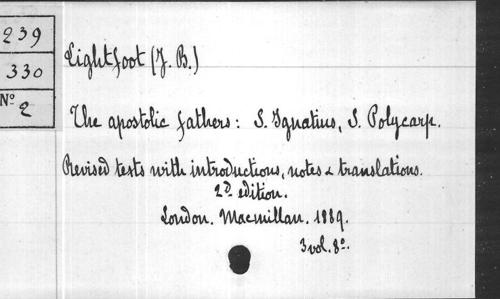 239
330
Nº 2
Lightfoot (J. B.)
The apostolic fathers: S. Ignatius, S. Polycarp.
Revised texts with introductions, notes & translations.
2d edition.
London. Macmillan. 1889.
3 vol. 8º.